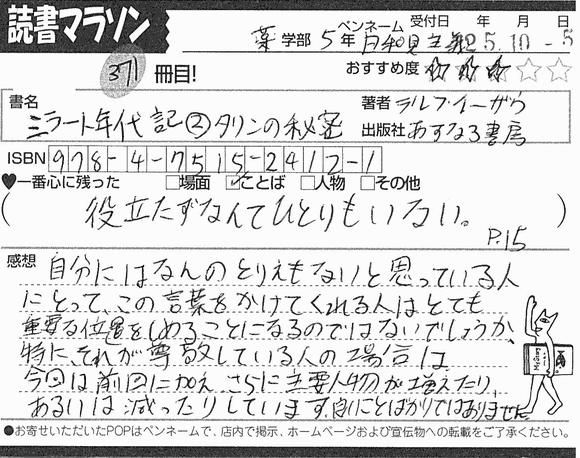 読書マラソン
ペンネーム 受付日 年 月 日
薬 学部 5年 日和見主義 25.10-5
371 冊目!
おすすめ度 ☆☆☆☆☆
書名 ミラート年代記②タリンの秘密
著者 ラルフ・イーザウ
出版社 あすなろ書房
ISBN 978-4-7515-2412-1
♥一番心に残った □場面 ☑ことば □人物 □その他
(役立たずなんてひとりもいない。)
P.15
感想 自分にはなんのとりえもないと思っている人
にとって、この言葉をかけてくれる人はとても
重要な位置をしめることになるのではないでしょうか、
特に、それが尊敬している人の場合は
今回は前回に加え、さらに主要人物が増えたり、
あるいは減ったりしています。良いことばかりではありません
●お寄せいただいたPOPはペンネームで、店内で掲示、ホームページおよび宣伝物への転載をご了承ください。